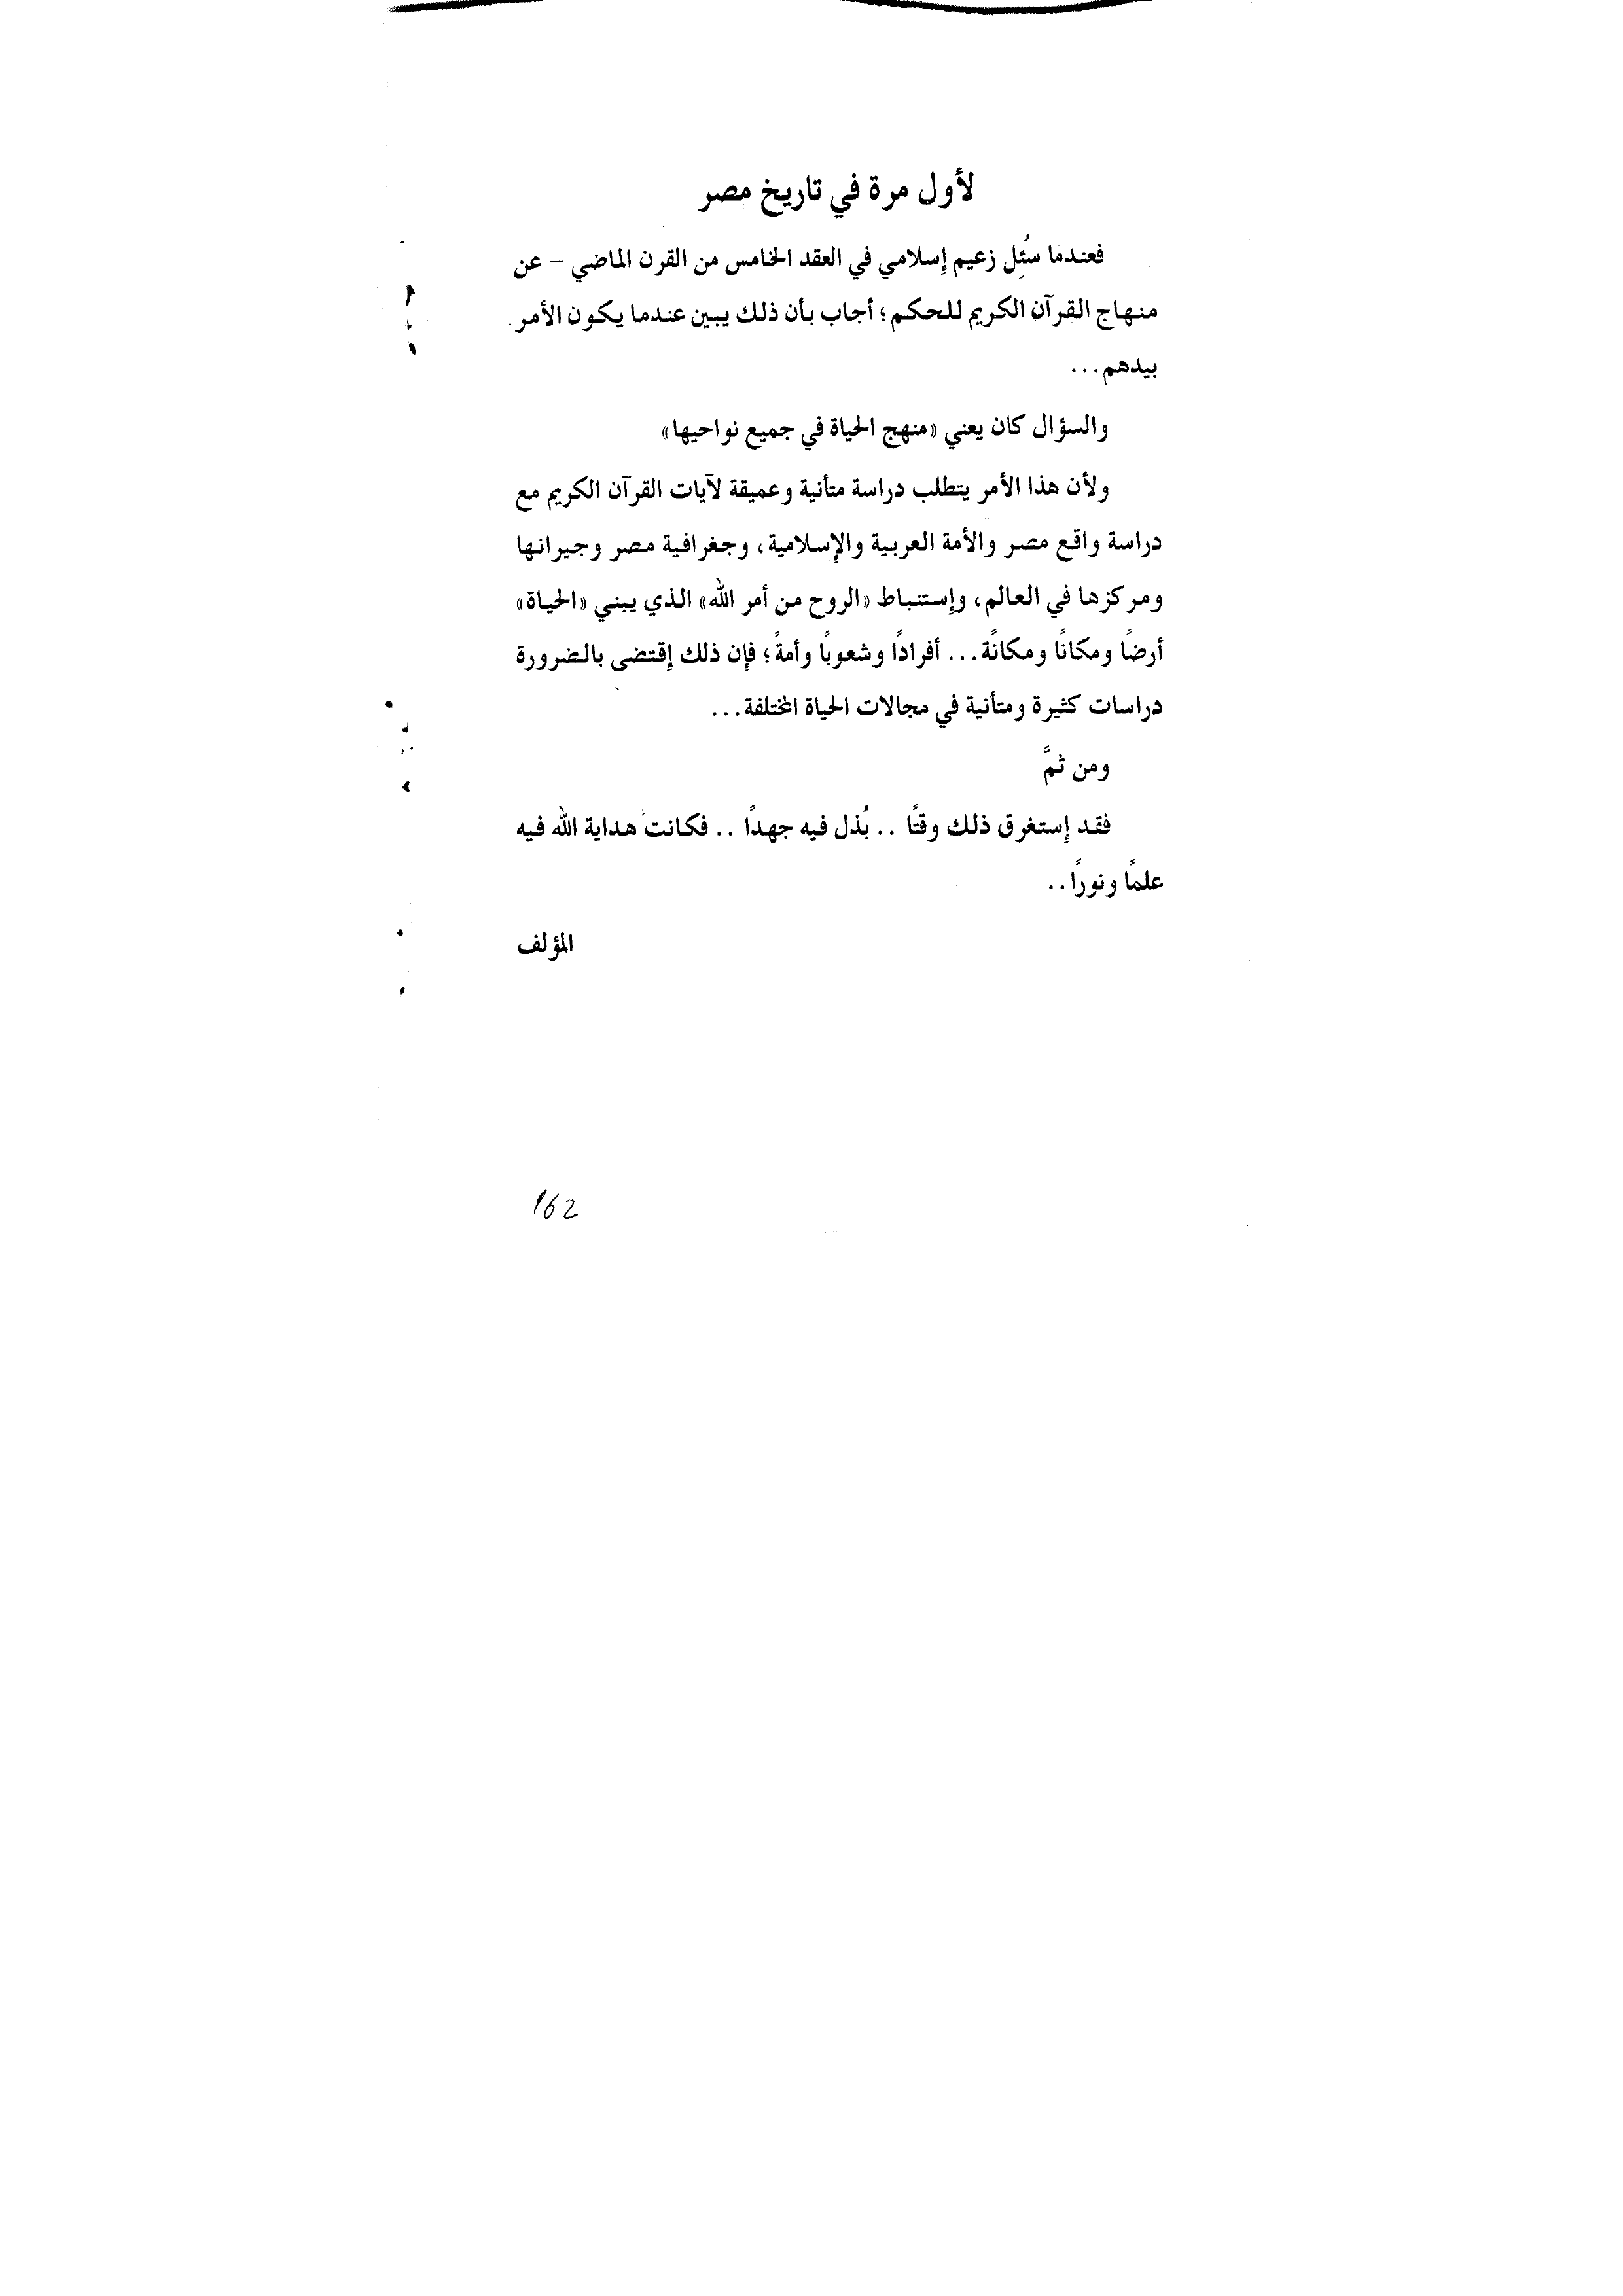 لأول مرة في تاريخ مصر
فعندما سُئِل زعيم إسلامي في العقد الخامس من القرن الماضي – عن
منهاج القرآن الكريم للحكم؛ أجاب بأن ذلك يبين عندما يكون الأمر
بيدهم...
والسؤال كان يعني «منهج الحياة في جميع نواحيها»
ولأن هذا الأمر يتطلب دراسة متأنية وعميقة لآيات القرآن الكريم مع
دراسة واقع مصر والأمة العربية والإسلامية، وجغرافية مصر وجيرانها
ومركزها في العالم، وإستنباط «الروح من أمر الله» الذي يبني «الحياة»
أرضًا ومكانًا ومكانًة... أفرادًا وشعوبًا وأمةً؛ فإن ذلك إقتضى بالضرورة
دراسات كثيرة ومتأنية في مجالات الحياة المختلفة...
ومن ثمَّ
فقد إستغرق ذلك وقتًا .. بُذل فيه جهدًا .. فكانت هداية الله فيه
علمًا ونورًا..
المؤلف
162